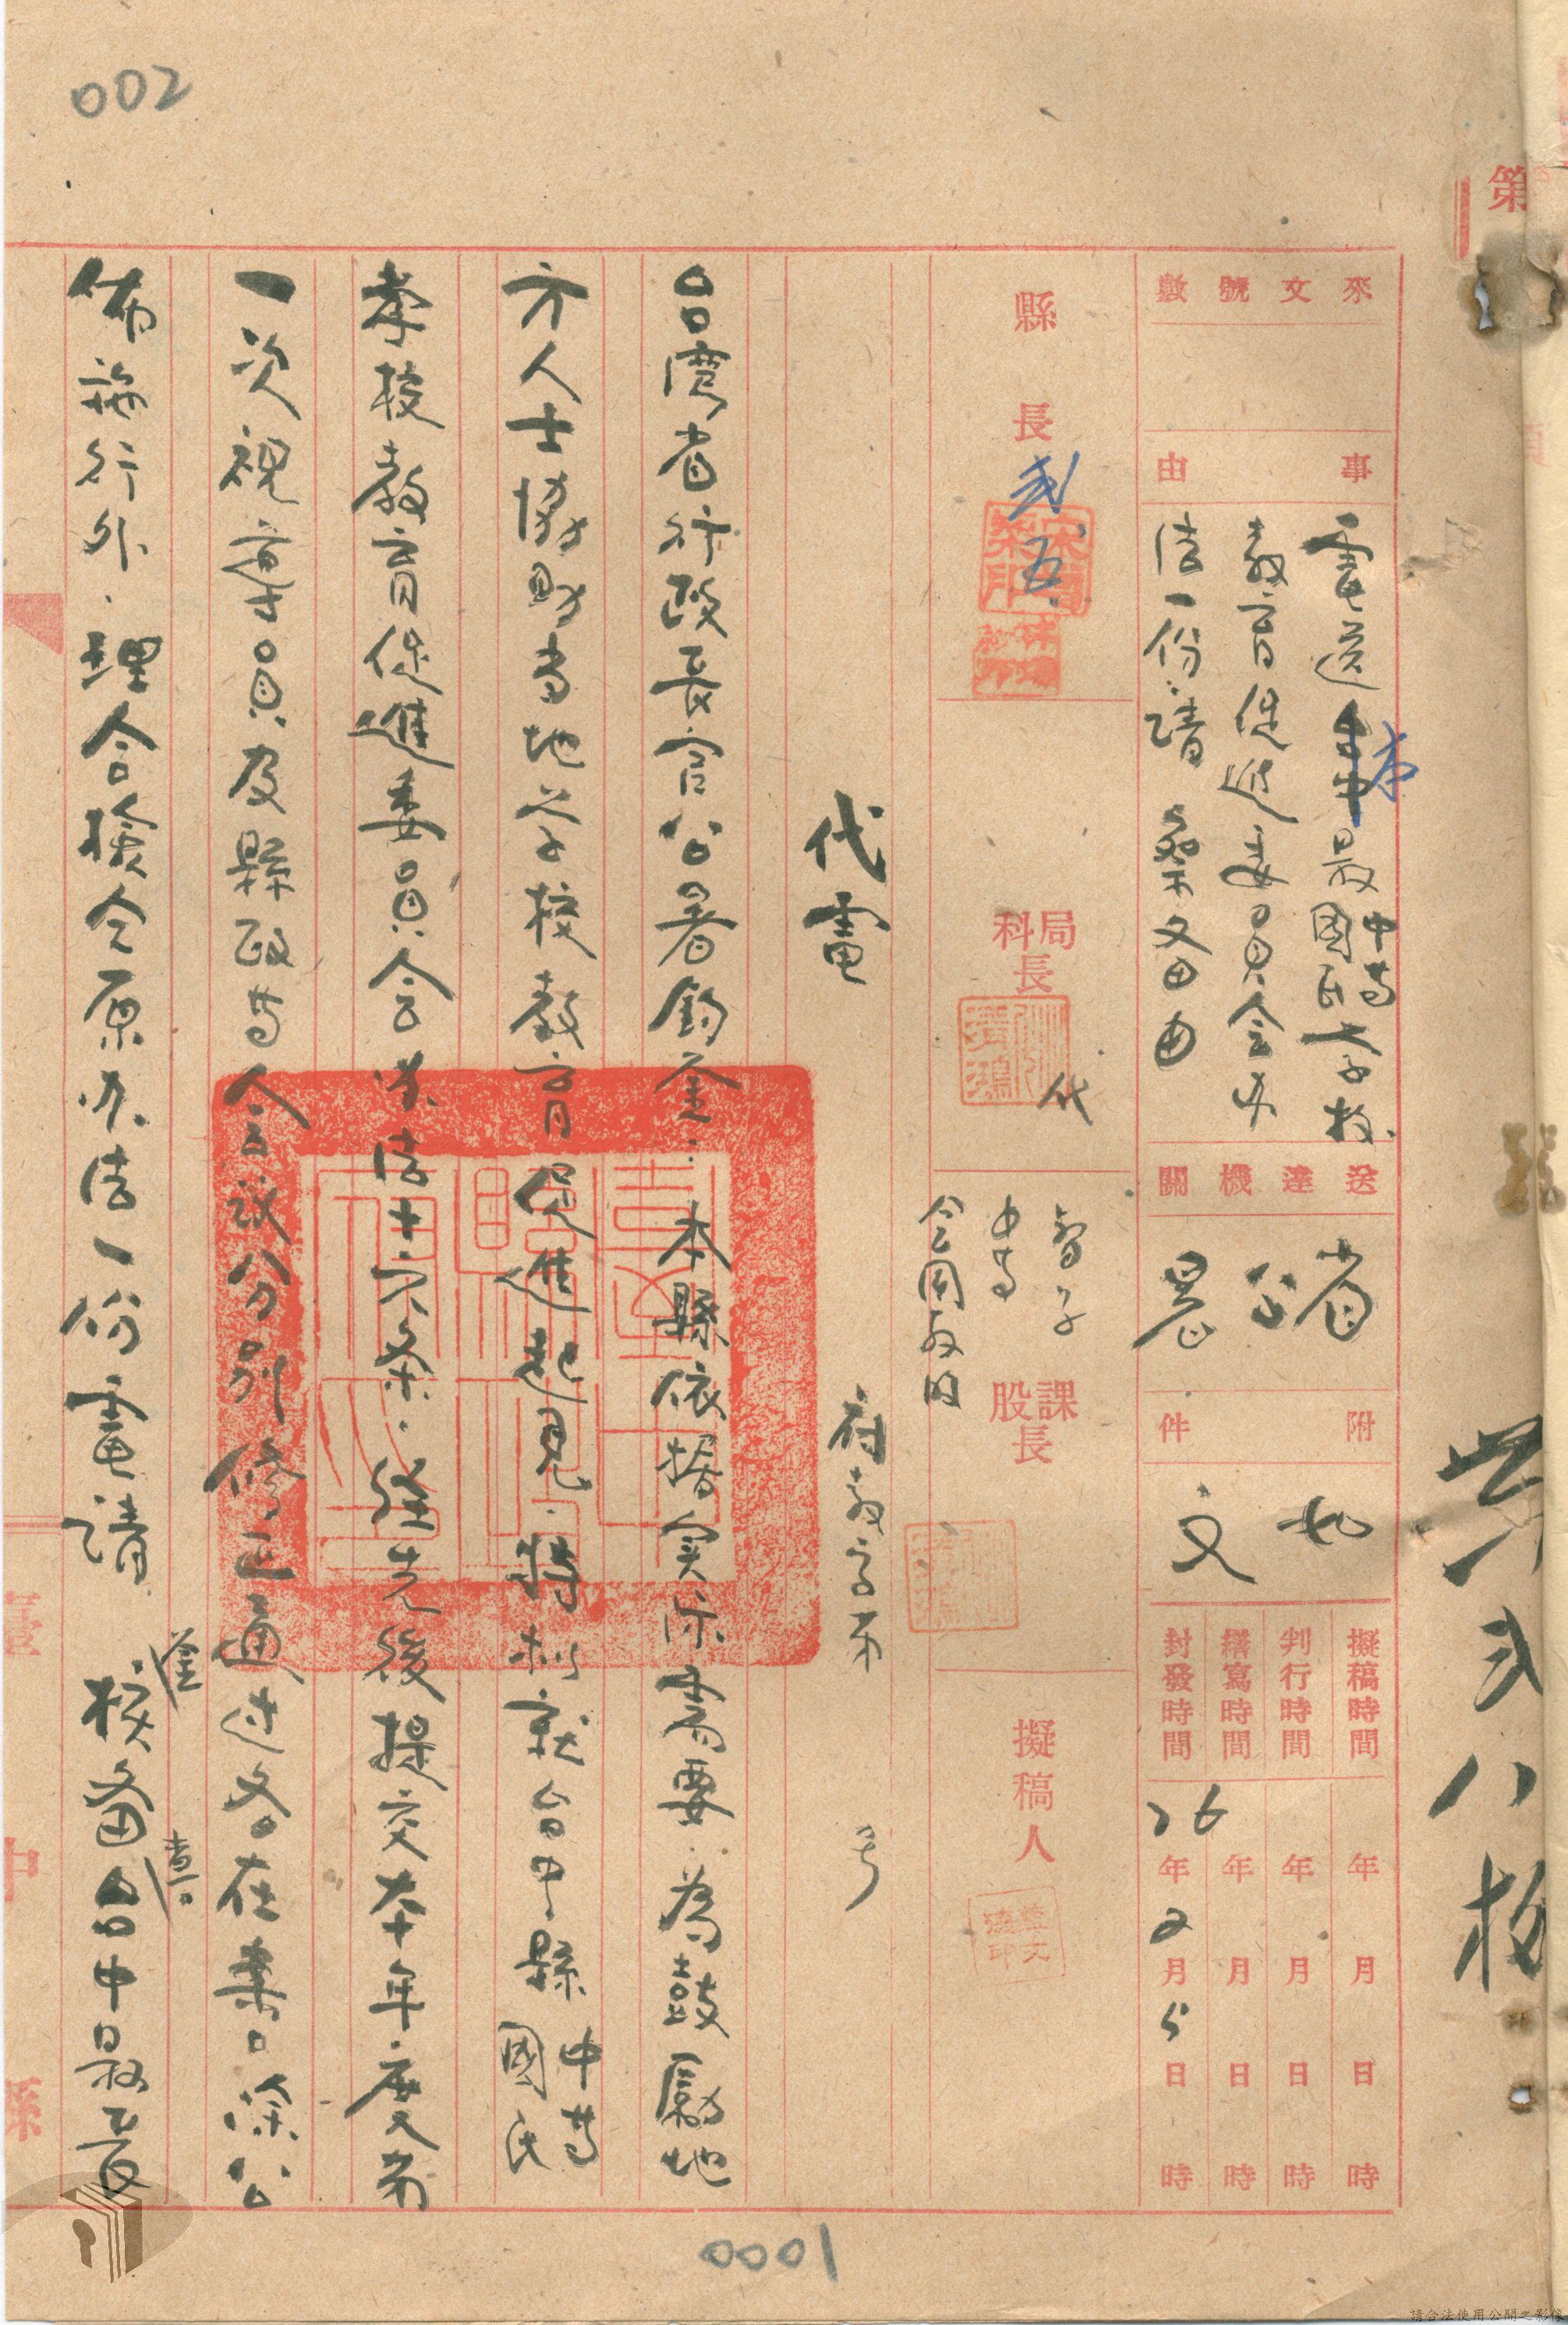 002
第
共弍八校
來文號數
事由
電送本縣中等國民學校
教育促進委員會办
法一份請 察备由
送達機關
省公署
附件
如文
擬稿時間 年 月 日 時
判行時間 年 月 日 時
繕寫時間 年 月 日 時
封發時間 36年2月5日 時
縣長
弍 五
局科長
代
課股長
中等
擬稿人
代電
府教 字第 号
台湾省行政長官公署鈞鉴·本縣依据实际需要·為鼓勵地
方人士協助当地学校教育促進起見·特制就台中縣中等國民
學校教育促進委員會办法十六条·經先後提交本年度第
一次視導員及縣政等會議分别修正通过各在案·除公
佈施行外·理合檢仝原办法一份電請
鉴 核备 查 台中縣長
臺中縣
0001
請合法使用公開之影像